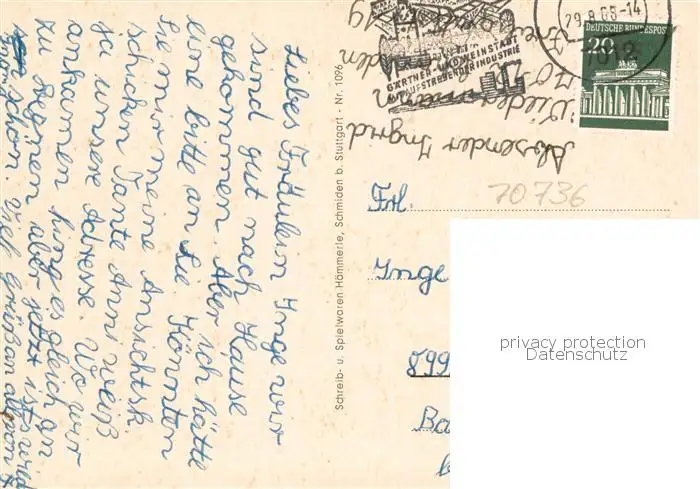 Liebes Fräulein Inge wir
sind gut nach Hause
gekommen. Aber ich hätte
eine bitte an Sie Könnten
Sie mir meine Ansichtsk.
schicken Tante Anni weiß
ja unsere Adresse. Wo wir
ankamen fing es gleich an
zu Regnen aber jetzt ist
schön. Viel Grüßen
Absender Ingrid
Schreib- u. Spielwaren Hämmerle, Schmiden b. Stuttgart - Nr. 1096
GÄRTNER- UND WEINSTADT
AUFSTREBENDER INDUSTRIE
29.8.68-14
DEUTSCHE BUNDESPOST
20
70736
Frl.
Inge
899
Ba
privacy protection
Datenschutz